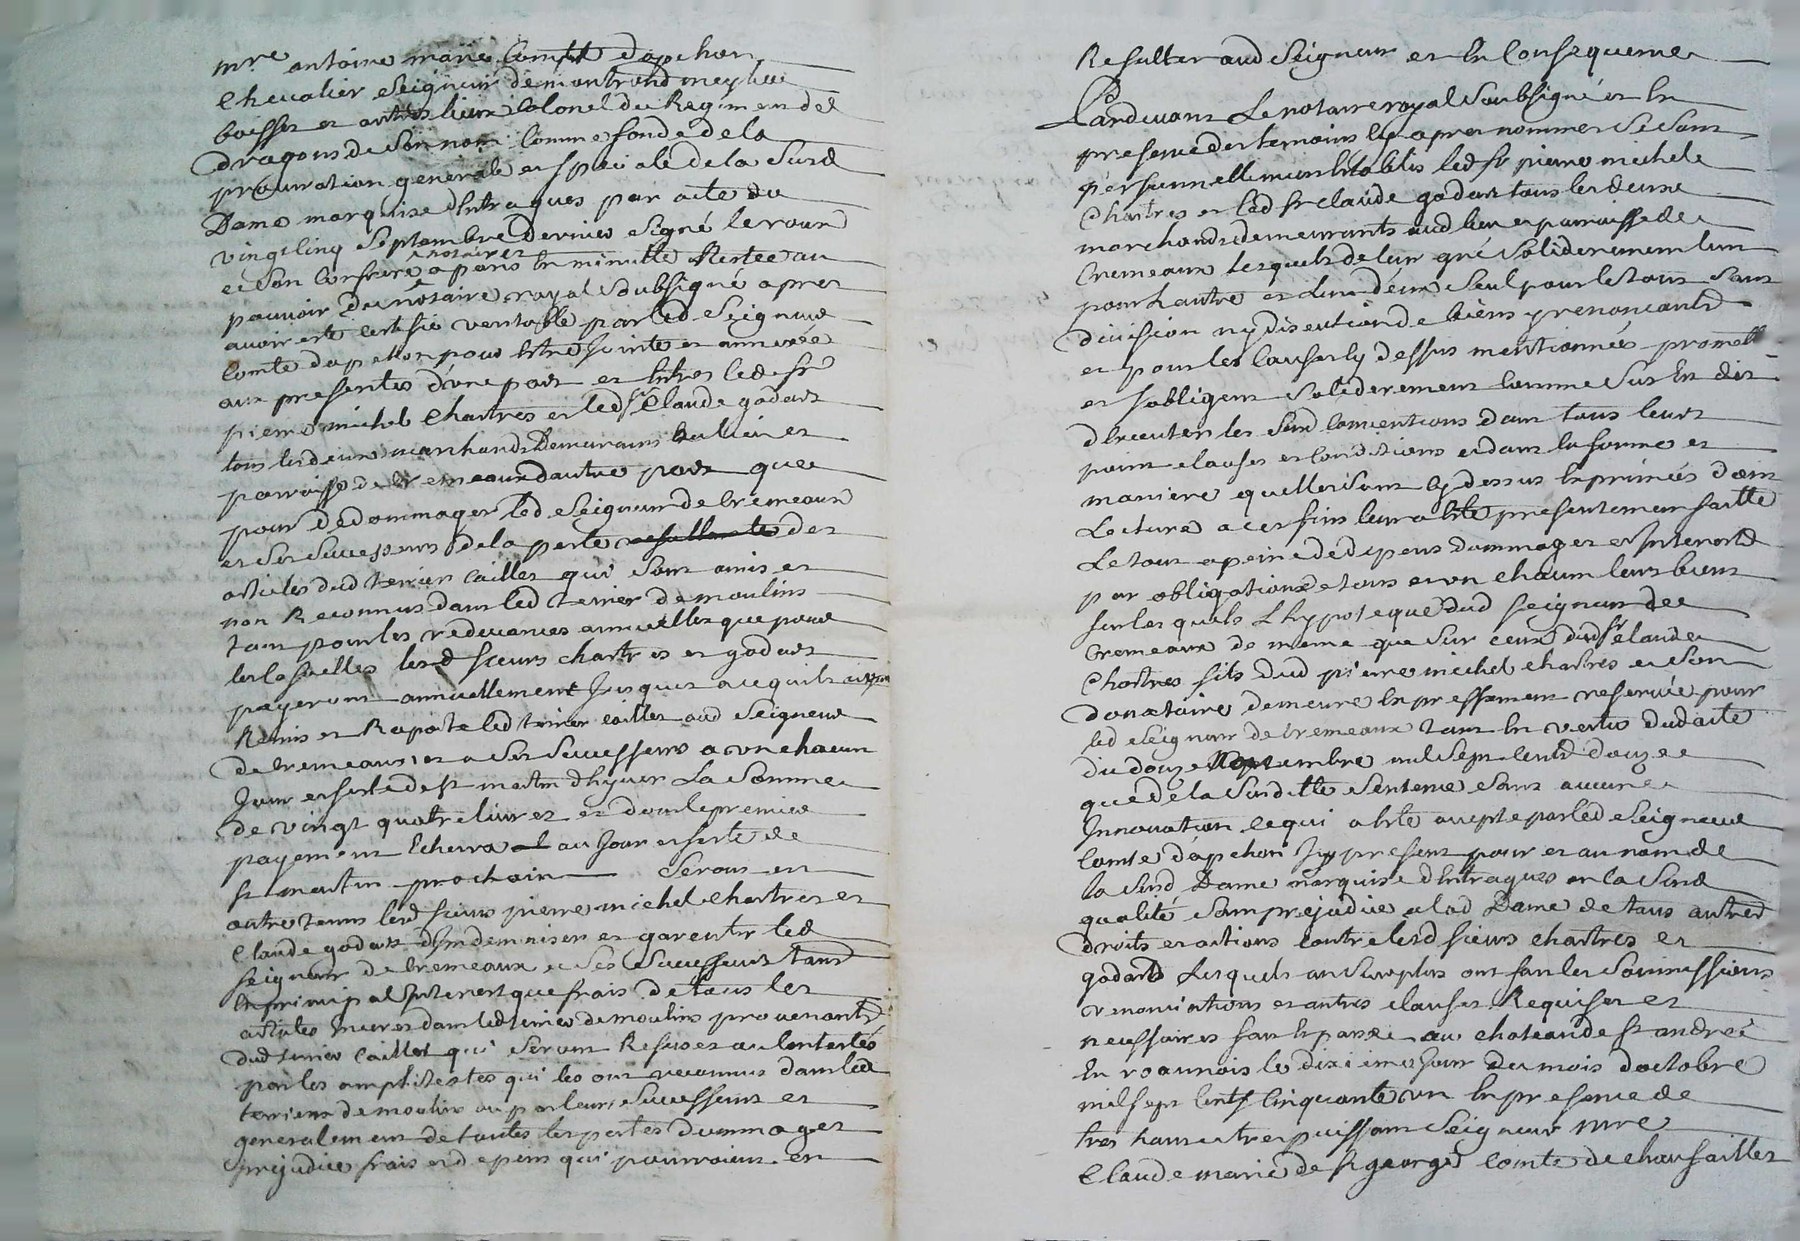 mre antoine marie Comte dapchon
Chevalier Seigneur de montrond meylieu
boisset et autres lieux Colonel du Regiment de
dragons de Son nom Comme fondé de la
procuration generale et speciale de la Susd
Dame marquise dEntragues par acte du
vingtcinq Septembre dernier Signé lerour
et Son Confrere notaires a paris la minutte Restée au
pouvoir du notaire royal Soubsigné apres
avoir eté certifié veritable par led Seigneur
Comte dapchon pour Etre Jointe et annexée
aux presentes d'une part et Entre led Sr
pierre michel Chartres et led Sr Claude godart
tous les deux marchands Demeurans au lieu et
parroisse de Cremeaux dautre part que
pour dedommager led Seigneur de Cremeaux
et Ses Successeurs de la perte des
articles dud terrier Cailles qui Sont omis et
non Reconnus dans led terrier de moulins
tant pour les redevances annuelles que pour
les lesd Sieurs chartres et godart
payeront annuellement Jusques a ce quils ayent
Remis et Raporté led terrier cailles aud Seigneur
de Cremeaux et a Ses Successeurs a un chacun
Jour et feste de st martin dhyver La Somme
de vingt quatre livres et dont le premier
payement Echerra au Jour et feste de
st martin prochain Seront en
outre tenus lesd Sieurs pierre michel Chartres et
Claude godart dIndemniser et garentir led
Seigneur de Cremeaux et Ses Successeurs tant
En principal Interest que frais de tous les
articles Inseres dans led terrier de moulins provenant
dud terrier Cailles qui Seront Refusés ou Contestés
par les amphiteotes qui les ont reconnus dans led
terrier de moulins ou par leurs Successeurs et
generalement de toutes les pertes Dommages
prejudice frais et depens qui pourroient en
Resulter aud Seigneur et En Consequence
Pardevant Le notaire royal Soubsigné et En
presence des temoins Cy apres nommes Se Sont
personnellement Etablis led Sr pierre michel
Chartres et led Sr claude godart tous les deux
marchands demeurants aud lieu et parroisse de
Cremeaux Lesquels de leur gré Soliderement l'un
pour L'autre et L'un d'eux Seul pour le tous Sans
division ny discution de biens y renoncant
et pour les Causes Cy dessus mentionnées promett
et Sobligent Soliderement Comme Sus En dit
dExecuter les Susd Conventions dans tous leurs
point clauses et Conditions et dans la forme et
maniere quelles Sont Cy dessus Exprimées dont
Lecture a ces fins leur a Eté presentement faitte
Le tout a peine de depens dommages et Interest
par obligation de tous et un chacun leurs biens
Sur les quels L'hypoteque dud Seigneur de
Cremeaux de meme que Sur Ceux dud Sr claude
Chartres fils dud pierre michel chartres et Son
donataire demeure Expressement reservée pour
led Seigneur de Cremeaux tant En vertu dud acte
du douze Septembre mil Sept Cents douze
que de la Susditte Sentence Sans aucune
Innovation ce qui a Eté accepté par led Seigneur
Comte dapchon Icy present pour et au nom de
la Susd Dame marquise dEntragues en la Susd
qualité Sans prejudice a lad Dame de tous autres
droits et actions Contre lesd Sieurs chartres et
godard Lesquels au Surplus ont fait les Soumissions
renonciations et autres clauses Requises et
necessaires fait et passé au chateau de st andré
En roannois le dixieme Jour du mois doctobre
mil Sept Cents Cinquante un En presence de
tres haut et tres puissant Seigneur mre
Claude marie de St georges Comte de chaufailles